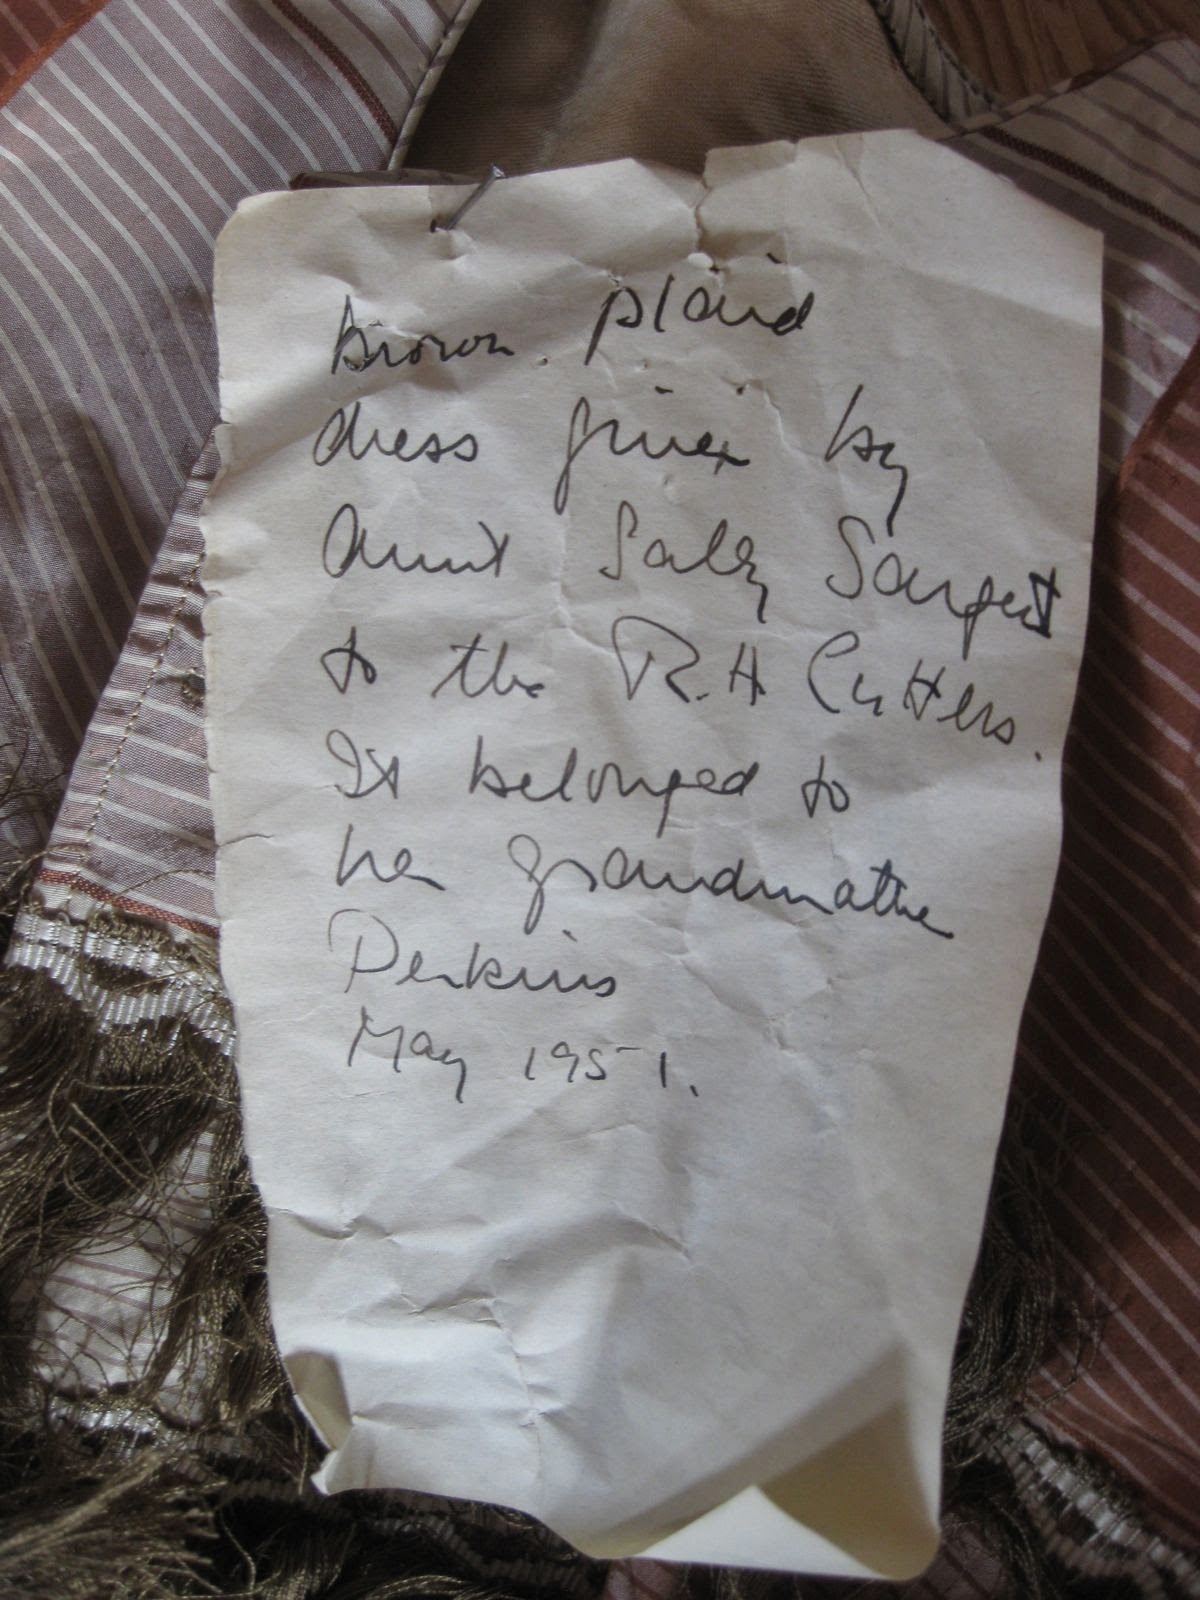 brown plaid
dress given by
Aunt Sally Sargent
to the R.H Cutlers.
It belonged to
her grandmother
Perkins
May 1951.